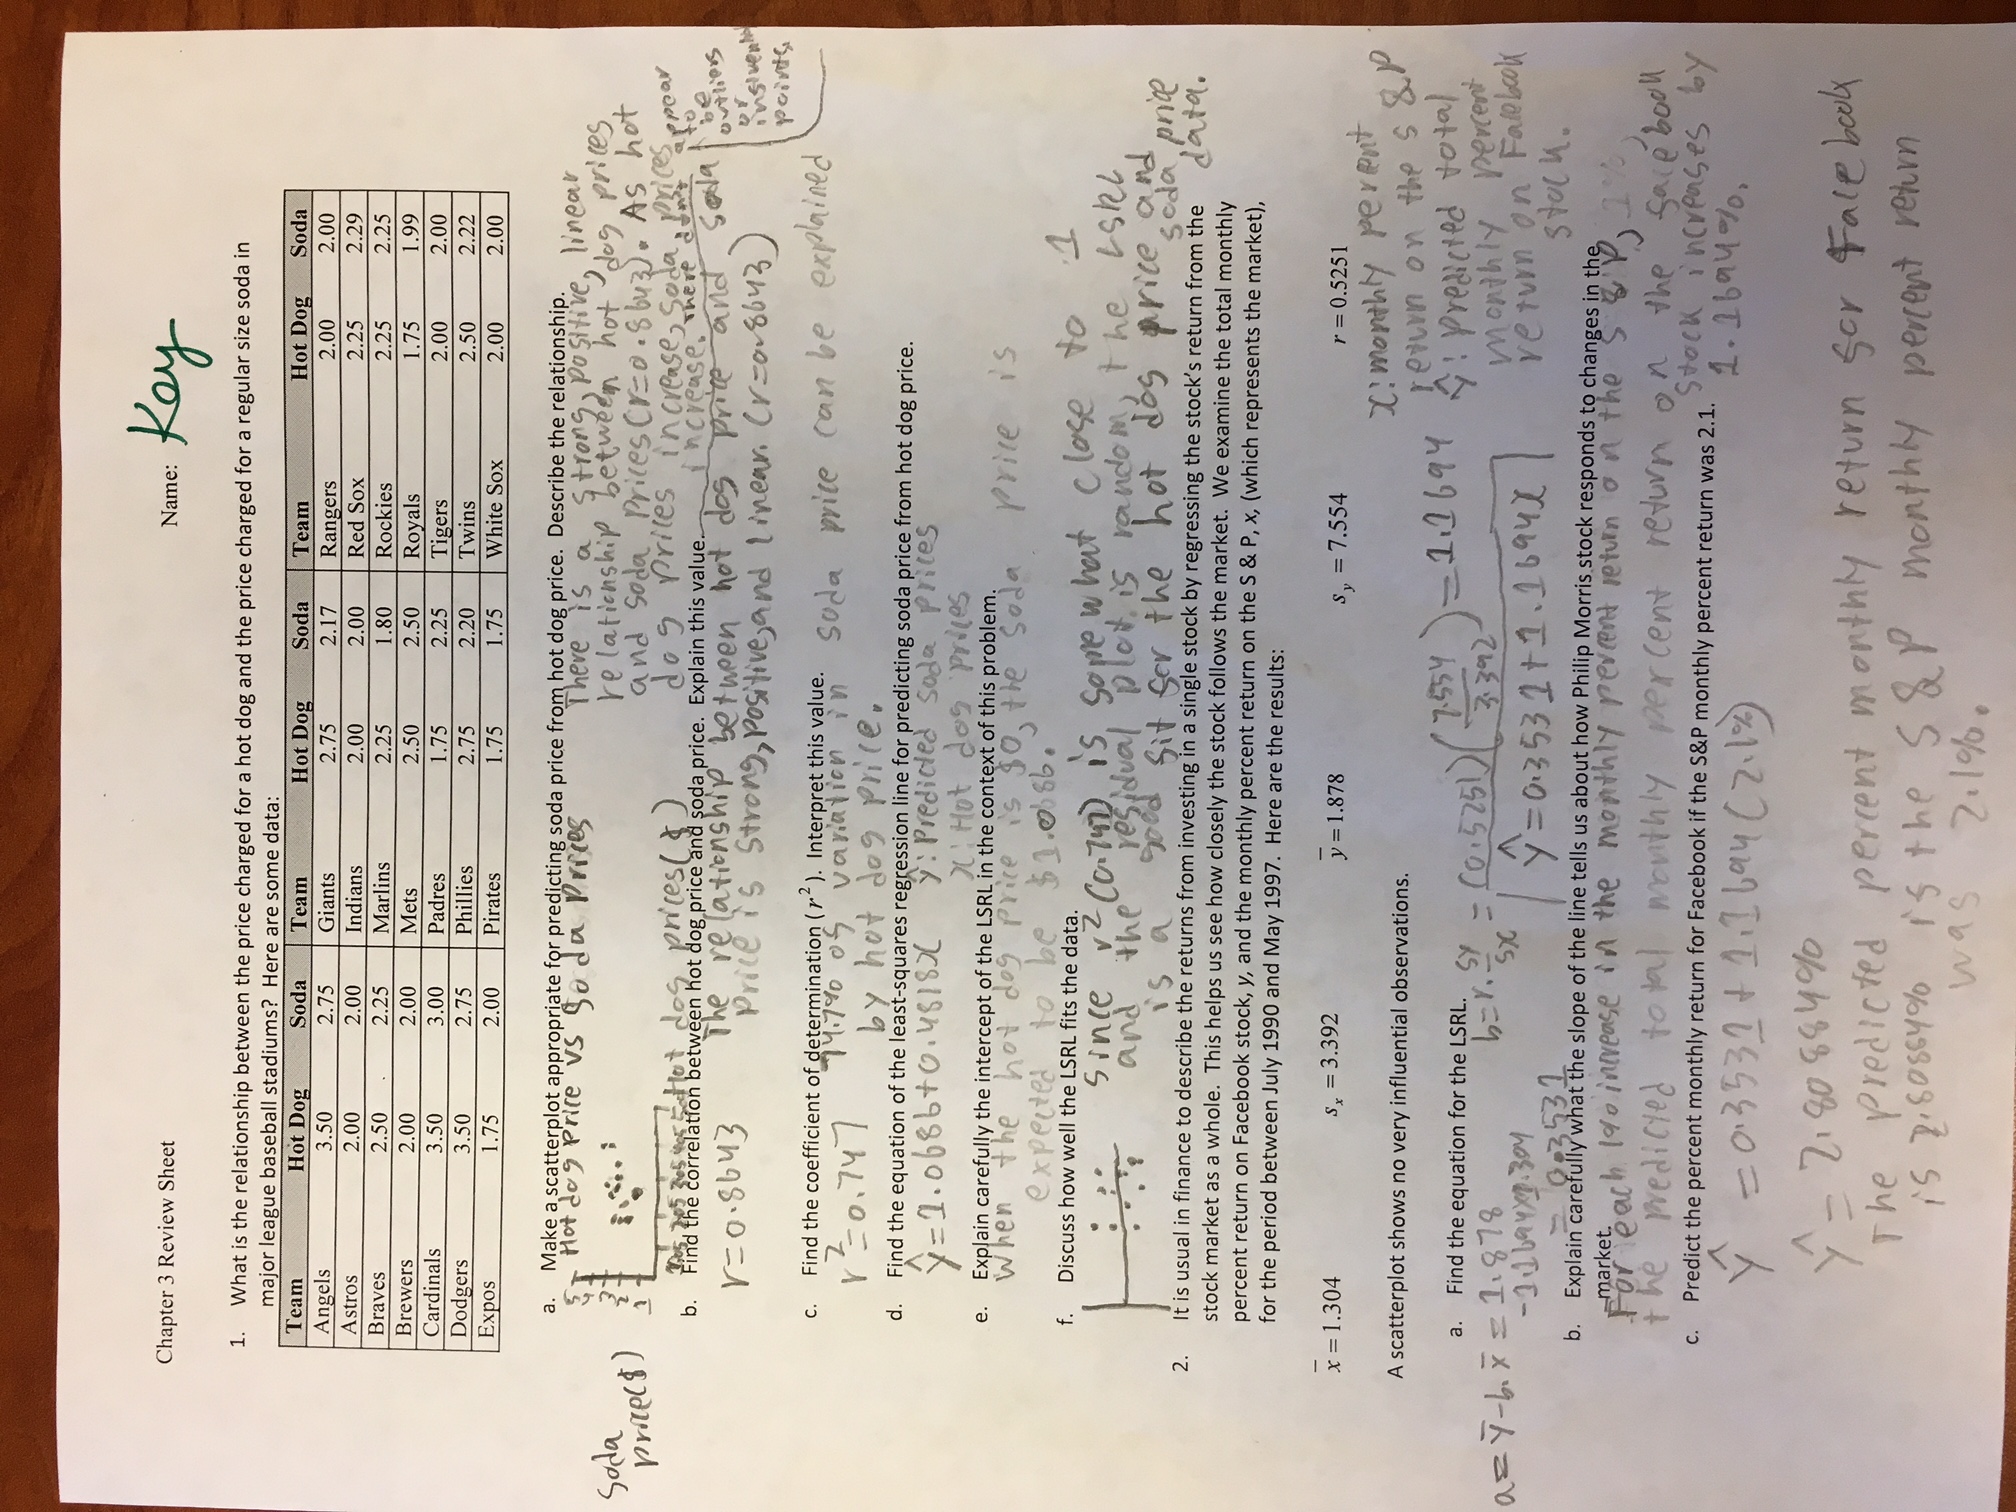 Chapter 3 Review Sheet
Name: Key
1. What is the relationship between the price charged for a hot dog and the price charged for a regular size soda in
major league baseball stadiums? Here are some data:
Team Hot Dog Soda Team Hot Dog Soda Team Hot Dog Soda
Angels 3.50 2.75 Giants 2.75 2.17 Rangers 2.00 2.00
Astros 2.00 2.00 Indians 2.00 2.00 Red Sox 2.25 2.29
Braves 2.50 2.25 Marlins 2.25 1.80 Rockies 2.25 2.25
Brewers 2.00 2.00 Mets 2.50 2.50 Royals 1.75 1.99
Cardinals 3.50 3.00 Padres 1.75 2.25 Tigers 2.00 2.00
Dodgers 3.50 2.75 Phillies 2.75 2.20 Twins 2.50 2.22
Expos 1.75 2.00 Pirates 1.75 1.75 White Sox 2.00 2.00
a. Make a scatterplot appropriate for predicting soda price from hot dog price. Describe the relationship.
Hot dog price vs soda prices
Soda
price($)
5
4
3
2
1
Hot dog prices($)
There is a strong, positive, linear
relationship between hot dog prices
and soda prices (r=0.8643). As hot
dog prices increase, soda prices
increase. There dont appear
to be
outliers
or
points.
b. Find the correlation between hot dog price and soda price. Explain this value.
r=0.8643
The relationship between hot dog price and soda
price is strong, positive, and linear. (r=0.8643)
c. Find the coefficient of determination (r²). Interpret this value.
r²=0.747
74.7% of variation in soda price can be explained
by hot dog price.
d. Find the equation of the least-squares regression line for predicting soda price from hot dog price.
ŷ=1.0686+0.4818x
ŷ: Predicted soda prices
x: Hot dog prices
e. Explain carefully the intercept of the LSRL in the context of this problem.
When the hot dog price is $0, the soda price is
expected to be $1.0686.
f. Discuss how well the LSRL fits the data.
Since r² (0.747) is somewhat close to 1
and the residual plot is random, the LSRL
is a good fit for the hot dog price and
soda price
data.
2. It is usual in finance to describe the returns from investing in a single stock by regressing the stock's return from the
stock market as a whole. This helps us see how closely the stock follows the market. We examine the total monthly
percent return on Facebook stock, y, and the monthly percent return on the S & P, x, (which represents the market),
for the period between July 1990 and May 1997. Here are the results:
x̄ = 1.304 s_x = 3.392 ȳ = 1.878 s_y = 7.554 r = 0.5251
A scatterplot shows no very influential observations.
x: monthly percent
return on the S &P
ŷ: predicted total
monthly percent
return on Facebook
stock.
a. Find the equation for the LSRL.
b=r·sy/sx = (0.5251)(7.554/3.392)=1.1694
a=ȳ-b·x̄ = 1.878
-1.1694×1.304
= 0.3531
ŷ=0.3531+1.1694x
b. Explain carefully what the slope of the line tells us about how Philip Morris stock responds to changes in the
market.
For each 1% increase in the monthly percent return on the S &P,
the predicted total monthly percent return on the Facebook
stock increases by
1.1694%.
c. Predict the percent monthly return for Facebook if the S&P monthly percent return was 2.1.
ŷ = 0.3531+1.1694(2.1%)
ŷ= 2.80884%
The predicted percent monthly return for Facebook
is 2.80884% if the S&P monthly percent return
was 2.1%.